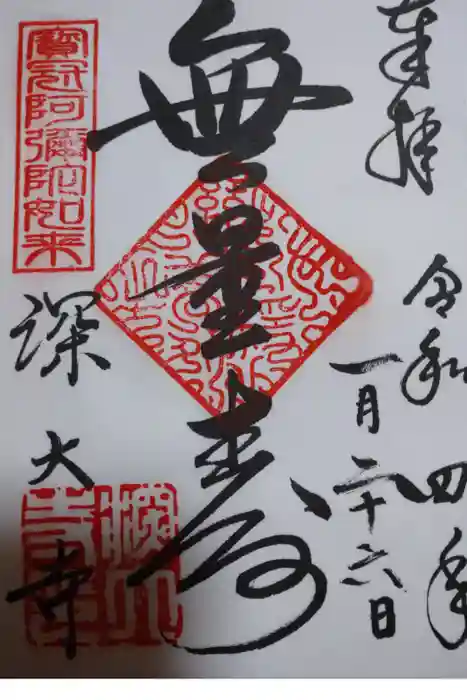 奉拝
令和四年
一月二十六日
無量寿
寶冠阿彌陀如来
深大寺